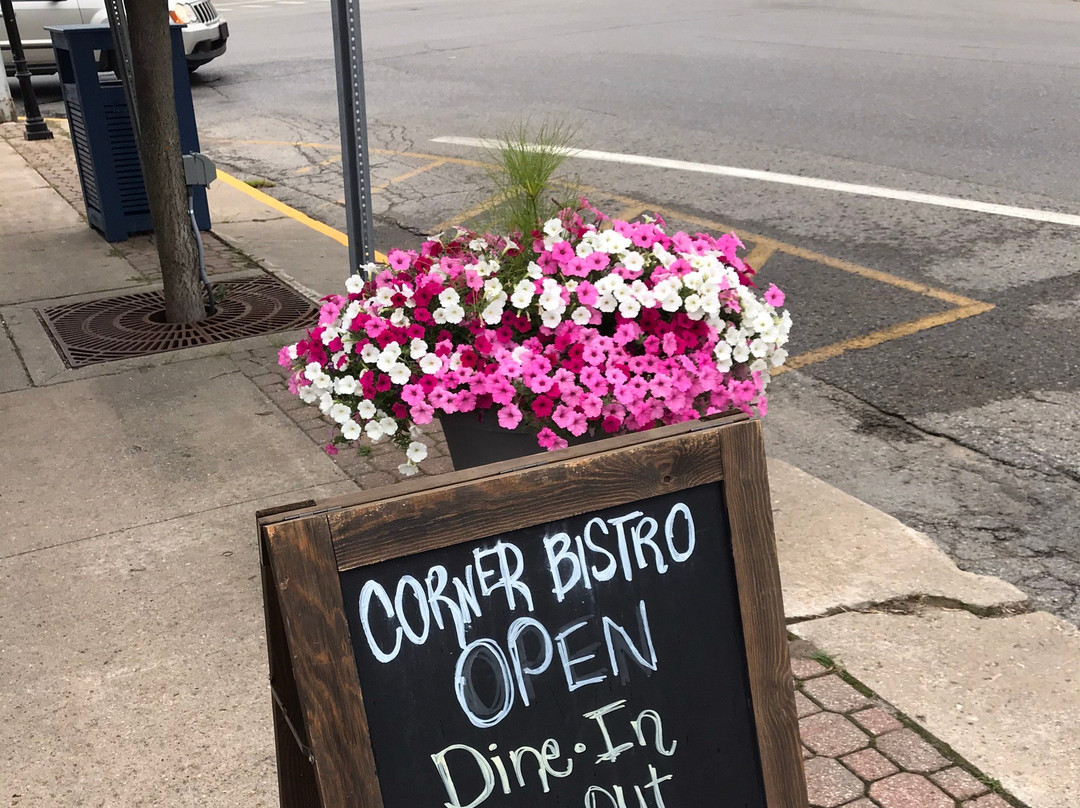 CORNER BISTRO
OPEN
Dine-In
out